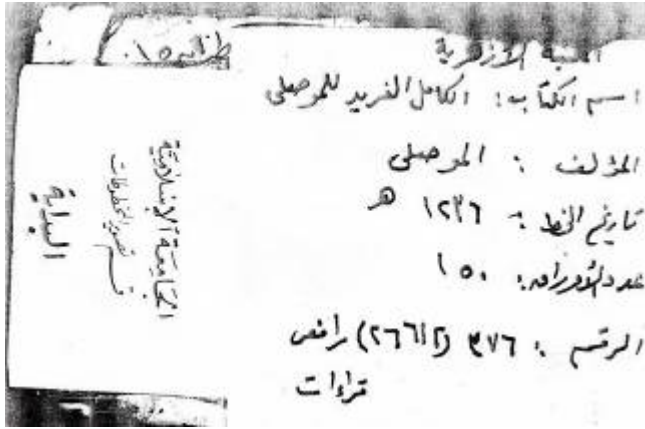 المكتبة الأزهرية
اسم الكتاب: الكامل الفريد للموصلي
المؤلف: الموصلي
تاريخ الخط: ١٢٣٦ هـ
عدد الأوراق: ١٥٠
الرقم: ٣٧٦
قراءات
الجامعة الإسلامية
قسم تصوير المخطوطات
البداية